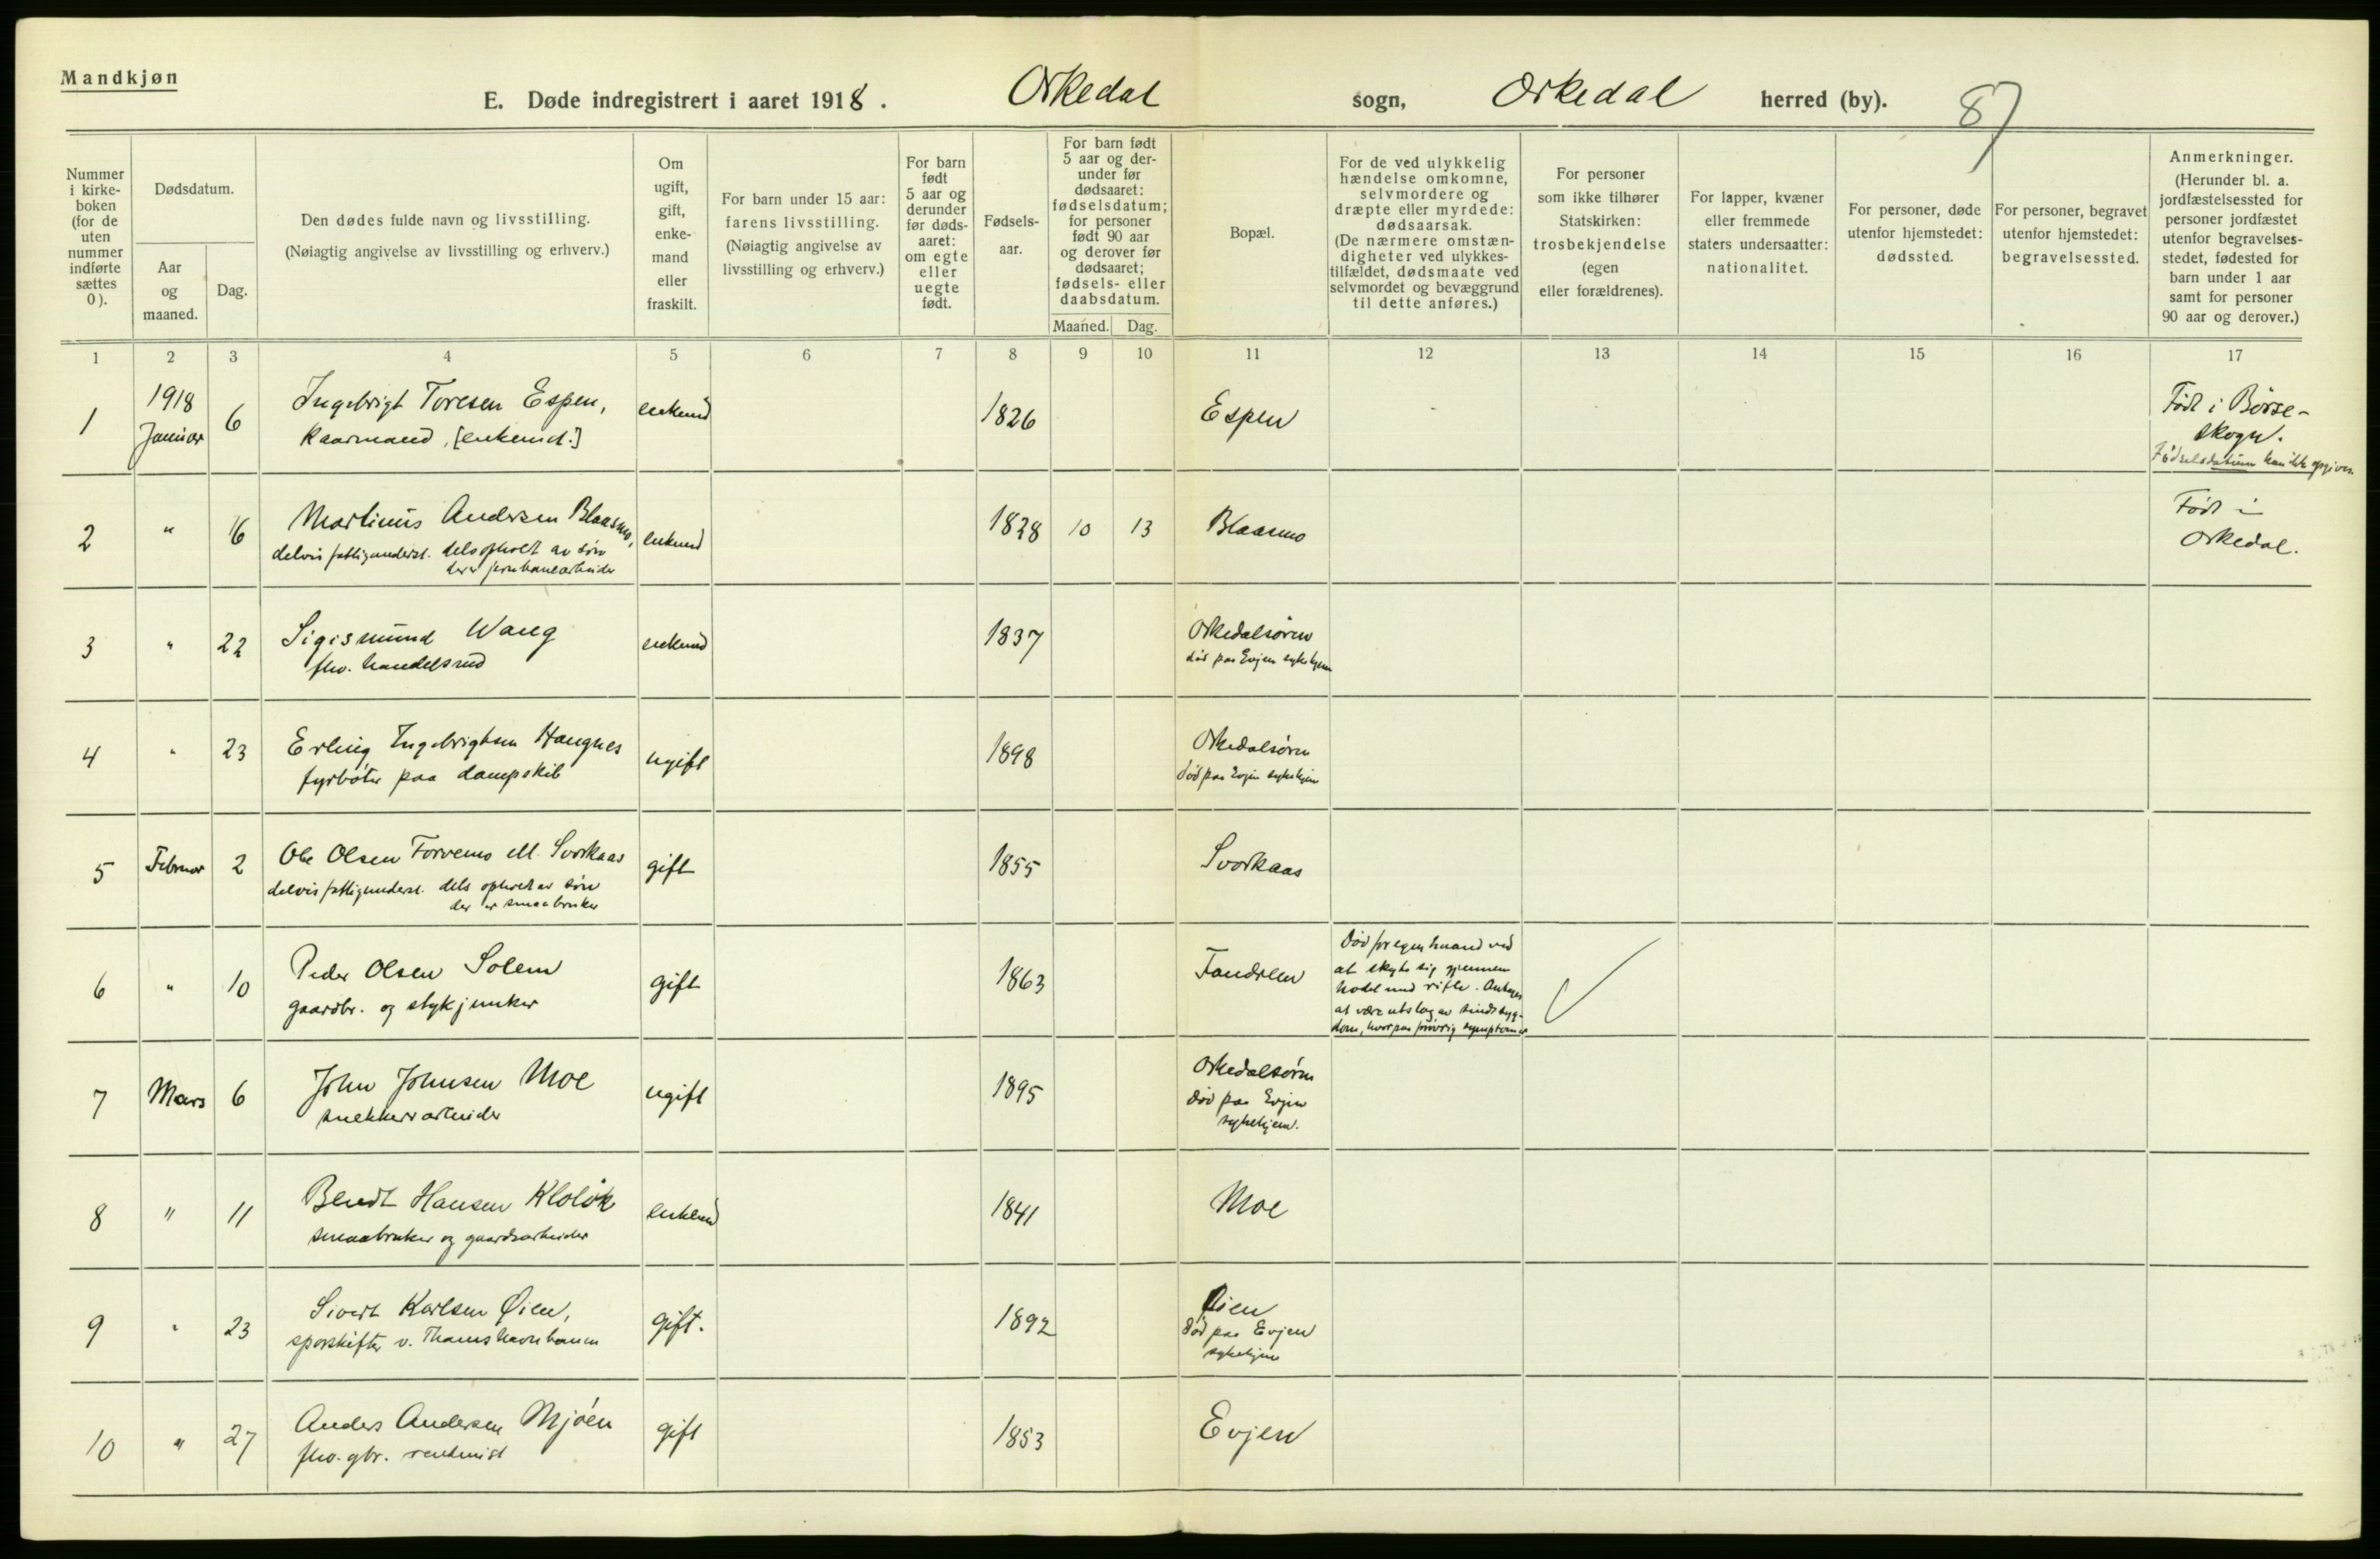 Mandkjøn
E. Døde indregistrert i aaret 1918. Orkedal sogn, Orkedal herred (by). 87
Nummer i kirkeboken (for de uten nummer indførte sættes 0).
Dødsdatum.
Aar og maaned.
Dag.
Den dødes fulde navn og livsstilling.
(Nøiagtig angivelse av livsstilling og erhverv.)
Om ugift, gift, enkemand eller fraskilt.
For barn under 15 aar: farens livsstilling.
(Nøiagtig angivelse av livsstilling og erhverv.)
For barn født 5 aar og derunder før dødsaaret: om egte eller uegte født.
Fødselsaar.
For barn født 5 aar og derunder før dødsaaret: fødselsdatum; for personer født 90 aar og derover før dødsaaret; fødsels- eller daabsdatum.
Maaned. Dag.
Bopæl.
For de ved ulykkelig hændelse omkomne, selvmordere og dræpte eller myrdede: dødsaarsak.
(De nærmere omstændigheter ved ulykkestilfældet, dødsmaate ved selvmordet og bevæggrund til dette anføres.)
For personer som ikke tilhører Statskirken: trosbekjendelse (egen eller forældrenes).
For lapper, kvæner eller fremmede staters undersaatter: nationalitet.
For personer, døde utenfor hjemstedet: dødssted.
For personer, begravet utenfor hjemstedet: begravelsessted.
Anmerkninger.
(Herunder bl. a. jordfæstelsessted for personer jordfæstet utenfor begravelsesstedet, fødested for barn under 1 aar samt for personer 90 aar og derover.)
1 2 3 4 5 6 7 8 9 10 11 12 13 14 15 16 17
1 1918 Januar 6 Ingebrigt Toresen Espen, enkemd 1826 Espen Født i Børse-
kaarmand, [enkemd.] skogn.
Fødselsdatum kan ikke opgives
2 " 16 Martinus Andersen Blaasmo, enkemd 1828 10 13 Blaasmo Født i
delvis fattigunderst. dels opholdt av søn Orkedal.
der er jernbanearbeider
3 " 22 Sigismund Wang enkemd 1837 Orkedalsøren
fhv. handelsmd død paa Evjen sykehjem
4 " 23 Erling Ingebrigtsen Haugnes ugift 1898 Orkedalsøren
fyrbøter paa dampskib død paa Evjen sykehjem
5 Februar 2 Ole Olsen Forvemo ell. Svorkaas gift 1855 Svorkaas
delvis fattigunderst. dels opholdt av søn
der er smaabruker
6 " 10 Peder Olsen Solem gift 1863 Fandrem Død for egen haand ved
gaardbr. og stykjunker at skyte sig gjennem
hodet med rifle. Antages
at være utslag av sindssyg-
dom, hvorpaa symptomer
7 Mars 6 John Johnsen Moe ugift 1895 Orkedalsøren
snekkerarbeider død paa Evjen
sykehjem.
8 " 11 Bendt Hansen Kloløk enkemd 1841 Moe
smaabruker og gaardsarbeider
9 " 23 Sivert Karlsen Øien, gift. 1892 Øien
sporskifter v. Thamshavnbanen død paa Evjen
sykehjem
10 " 27 Anders Andersen Mjøen gift 1853 Evjen
fhv. gbr. rentenist